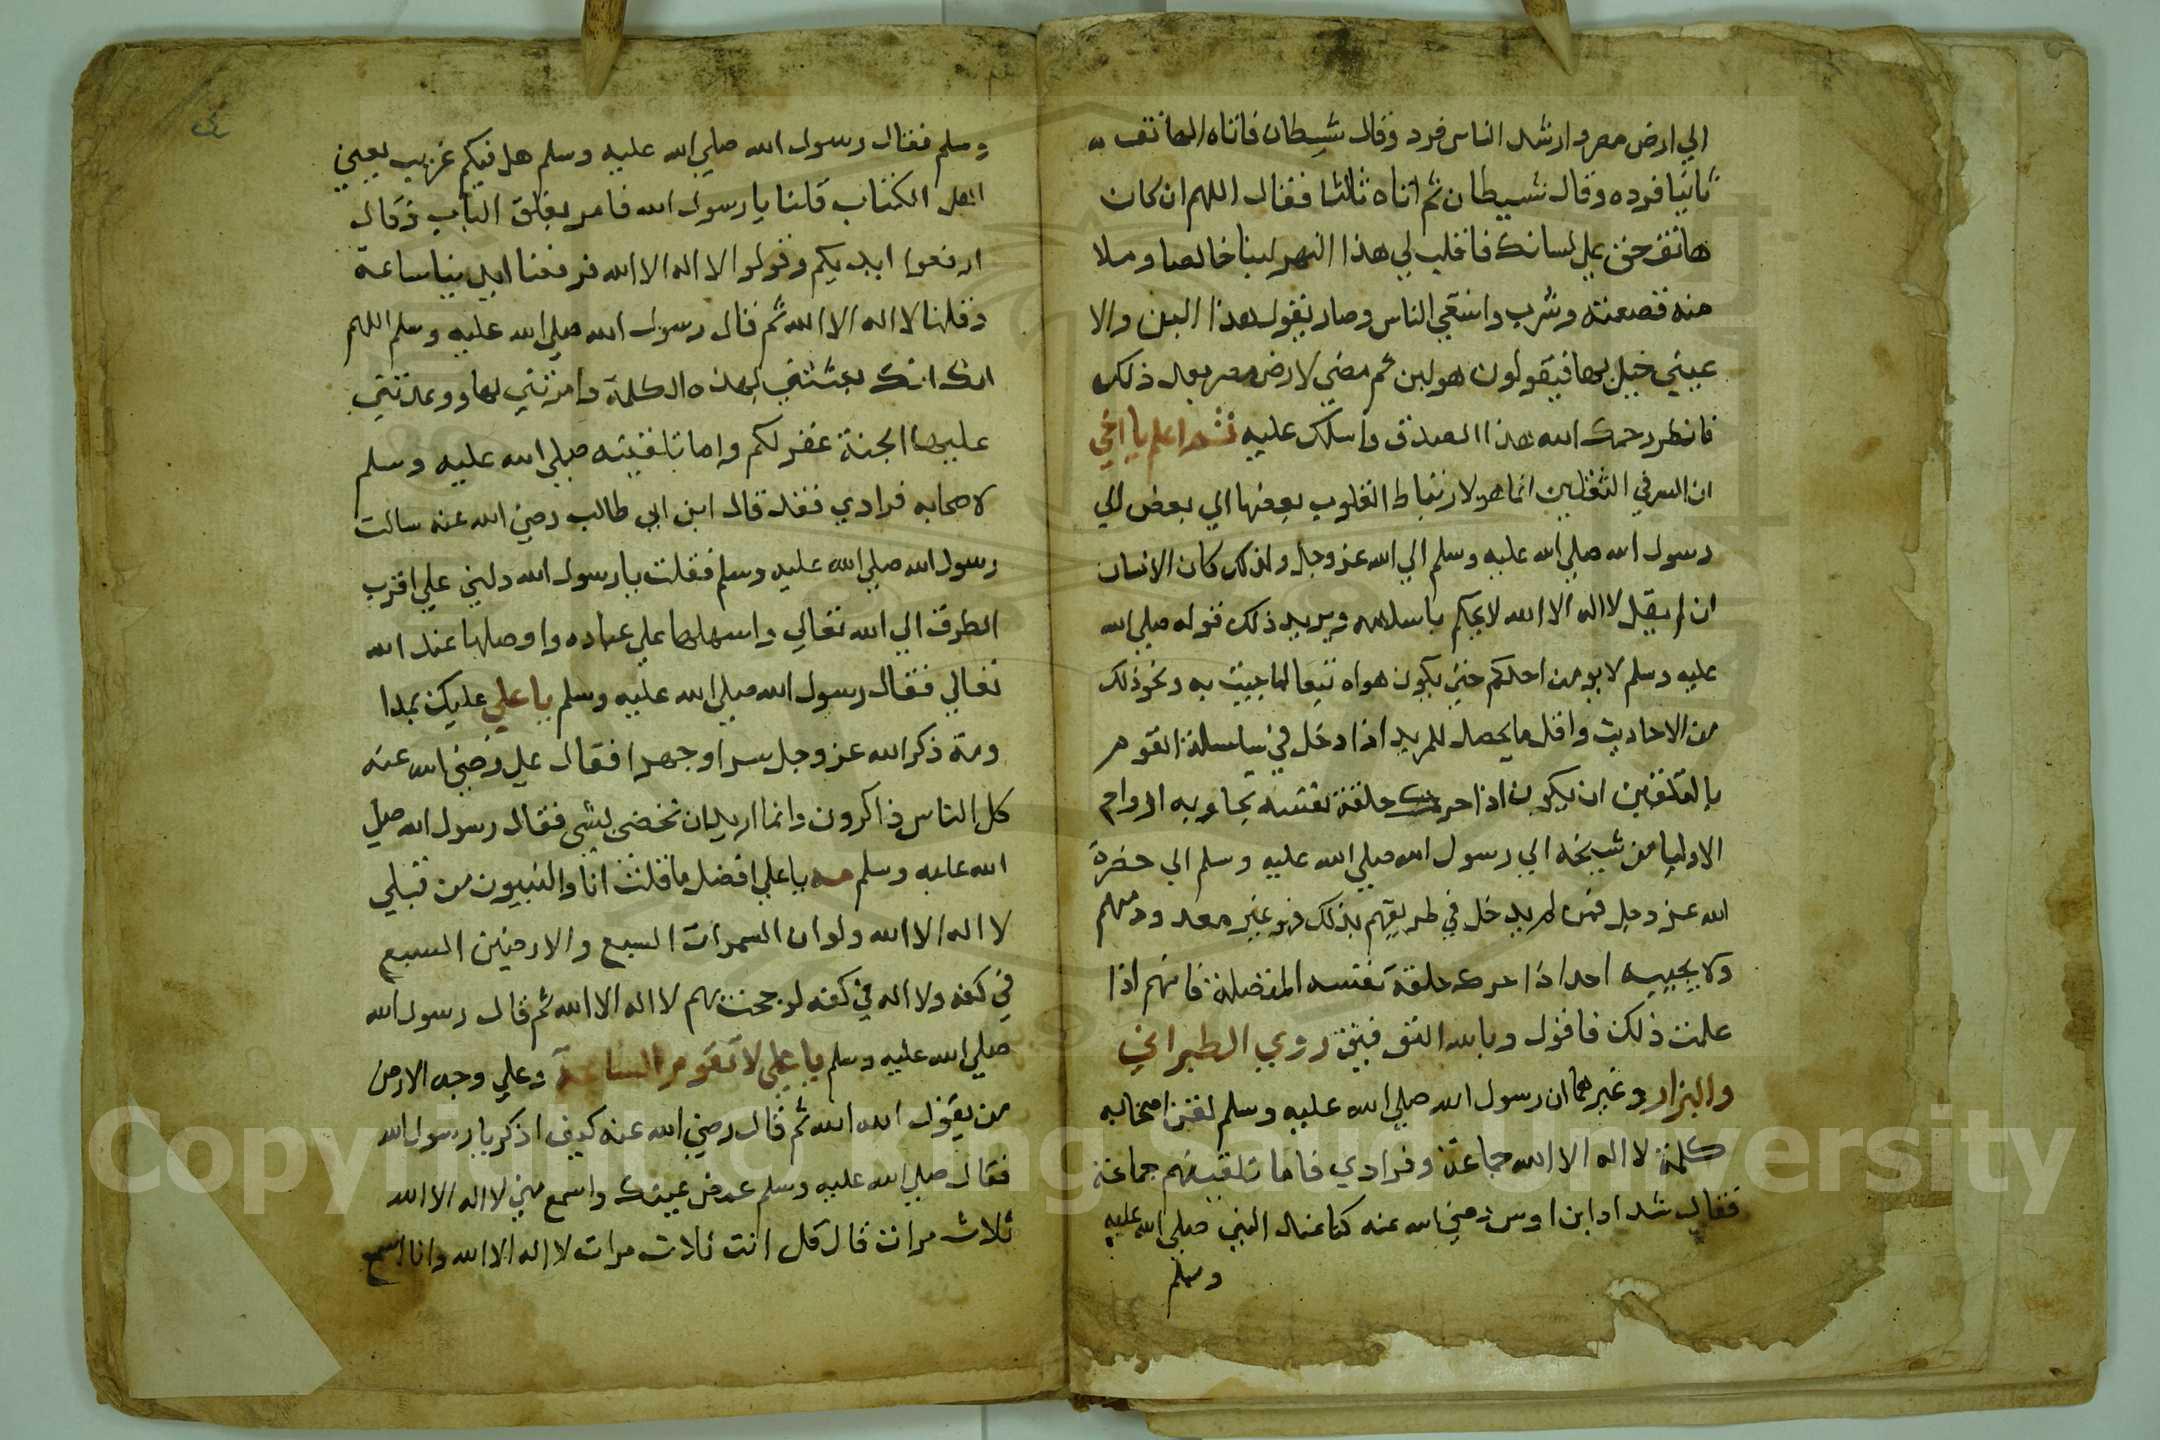 الي ارض مصر وارشد الناس فرد وقال شيطان فاتاه الهاتف
ثانيا فرده وقال شيطان ثم اتاه ثالثا فقال اللهم ان كان
هاتف حق علي لسانك فاقلب لي هذا النهر لبنا خالصا وملا
منه قصعته وشرب واسقي الناس وصار يقول هذا اللبن والا
عيني خيل لها فيقولون هو لبن ثم مضي لارض مصر بعد ذلك
فانظر رحمك الله هذا الصدق واسلك عليه ثم اعلم يا اخي
ان السر في التلقين انما هو لارتباط القلوب بعضها الي بعض الي
رسول الله صلي الله عليه وسلم الي الله عز وجل ولذلك كان الانسان
ان لم يقل لا اله الا الله لا يحكم باسلامه ويريد ذلك قوله صلي الله
عليه وسلم لا يومن احدكم حتي يكون هواه تبعا لما جيت به ونحو ذلك
من الاحاديث واقل ما يحصل للمريد اذا دخل في سلسلة القوم
بالتلقين ان يكون اذا حرك حلقة نفسه تجاوبه ارواح
الاوليا من شيخه الي رسول الله صلي الله عليه وسلم الي حضرة
الله عز وجل فمن لم يدخل في طريقهم بذلك فهو غير معدود منهم
ولا يجيبه احد اذا حرك حلقة نفسه المنفصلة فافهم اذا
علمت ذلك فاقول وبالله التوفيق روي الطبراني
والبزار وغيرهما ان رسول الله صلي الله عليه وسلم لقن اصحابه
كلمة لا اله الا الله جماعة وفرادي فاما تلقينهم جماعة
فقال شداد ابن اوس رضي الله عنه كنا عند النبي صلي الله عليه
وسلم
وسلم فقال رسول الله صلي الله عليه وسلم هل فيكم غريب يعني
اهل الكتاب قلنا يا رسول الله فامر بغلق الباب وقال
ارفعوا ايديكم وقولوا لا اله الا الله فرفعنا ايدينا ساعة
وقلنا لا اله الا الله ثم قال رسول الله صلي الله عليه وسلم اللهم
انك بعثتني بهذه الكلمة وامرتني بها ووعدتني
عليها الجنة غفر لكم واما تلقينه صلي الله عليه وسلم
لاصحابه فرادي فقد قال ابن ابي طالب رضي الله عنه سالت
رسول الله صلي الله عليه وسلم فقلت يا رسول الله دلني علي اقرب
الطرق الي الله تعالي واسهلها علي عباده واوصلها عند الله
تعالي فقال رسول الله صلي الله عليه وسلم يا علي عليك بمدا
ومة ذكر الله عز وجل سرا وجهرا فقال علي رضي الله عنه
كل الناس ذاكرون وانما اريد ان تخصني بشي فقال رسول الله صلي
الله عليه وسلم مه يا علي افضل ما قلت انا والنبيون من قبلي
لا اله الا الله ولو ان السموات السبع والارضين السبع
في كفه ولا اله في كفه لرجحت بهم لا اله الا الله ثم قال رسول الله
صلي الله عليه وسلم يا علي لا تقوم الساعة وعلي وجه الارض
من يقول الله الله ثم قال رضي الله عنه كيف اذكر يا رسول الله
فقال صلي الله عليه وسلم غمض عينيك واسمع مني لا اله الا الله
ثلاث مرات قال قل انت ثلاث مرات لا اله الا الله وانا اسمع
Copyright © King Saud University